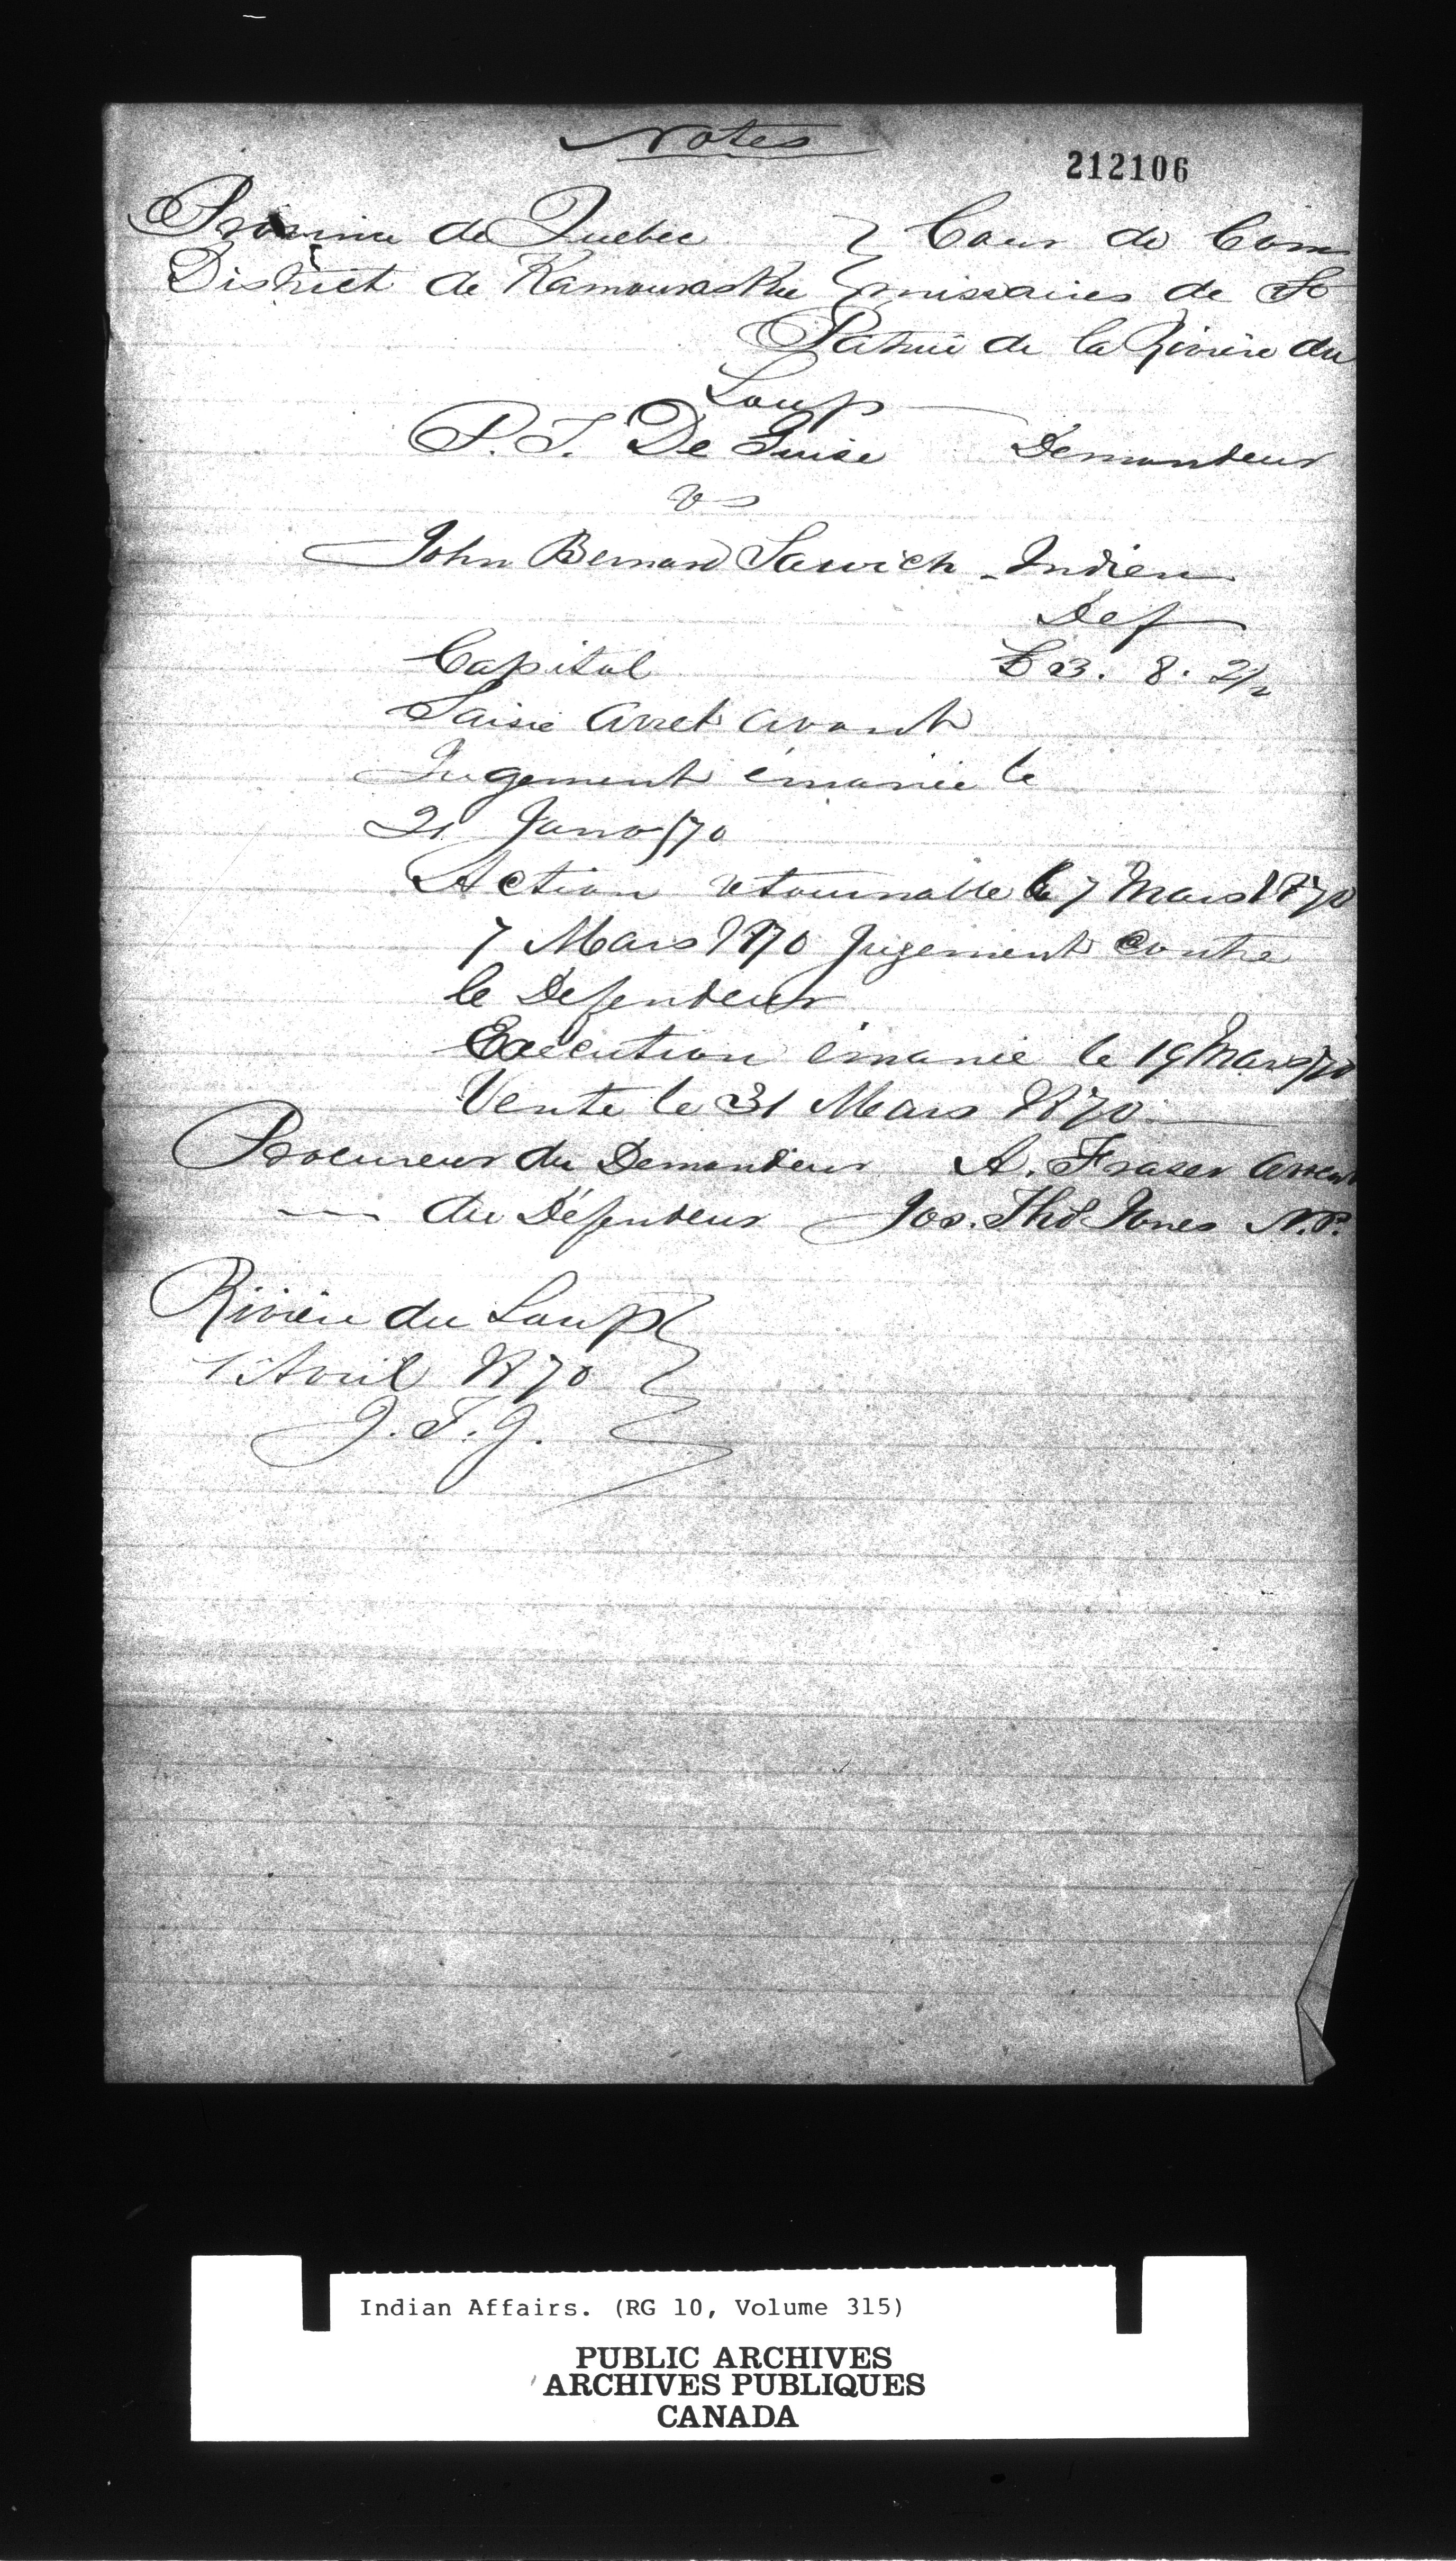 Notes
212106
Province de Quebec } Cour de Com
District de Kamouraska } missaires de St
Patrice de la Rivière du
Loup
P. T. De Guise Demandeur
vs
John Bernard Lawich - Indien
Def
Capital £3. 8. 2½
Saisie arret avant
Jugement émanée le
21 Janv/70
Action retournable le 7 Mars 1870
7 Mars 1870 Jugement contre
le Defendeur
Execution émanée le 19 Mars/70
Vente le 31 Mars 1870
Procureur du Demandeur A. Fraser avocat
— du Défendeur Jos. Thos Jones N.P.
Rivière du Loup
1 Avril 1870
J. T. J.
Indian Affairs. (RG 10, Volume 315)
PUBLIC ARCHIVES
ARCHIVES PUBLIQUES
CANADA